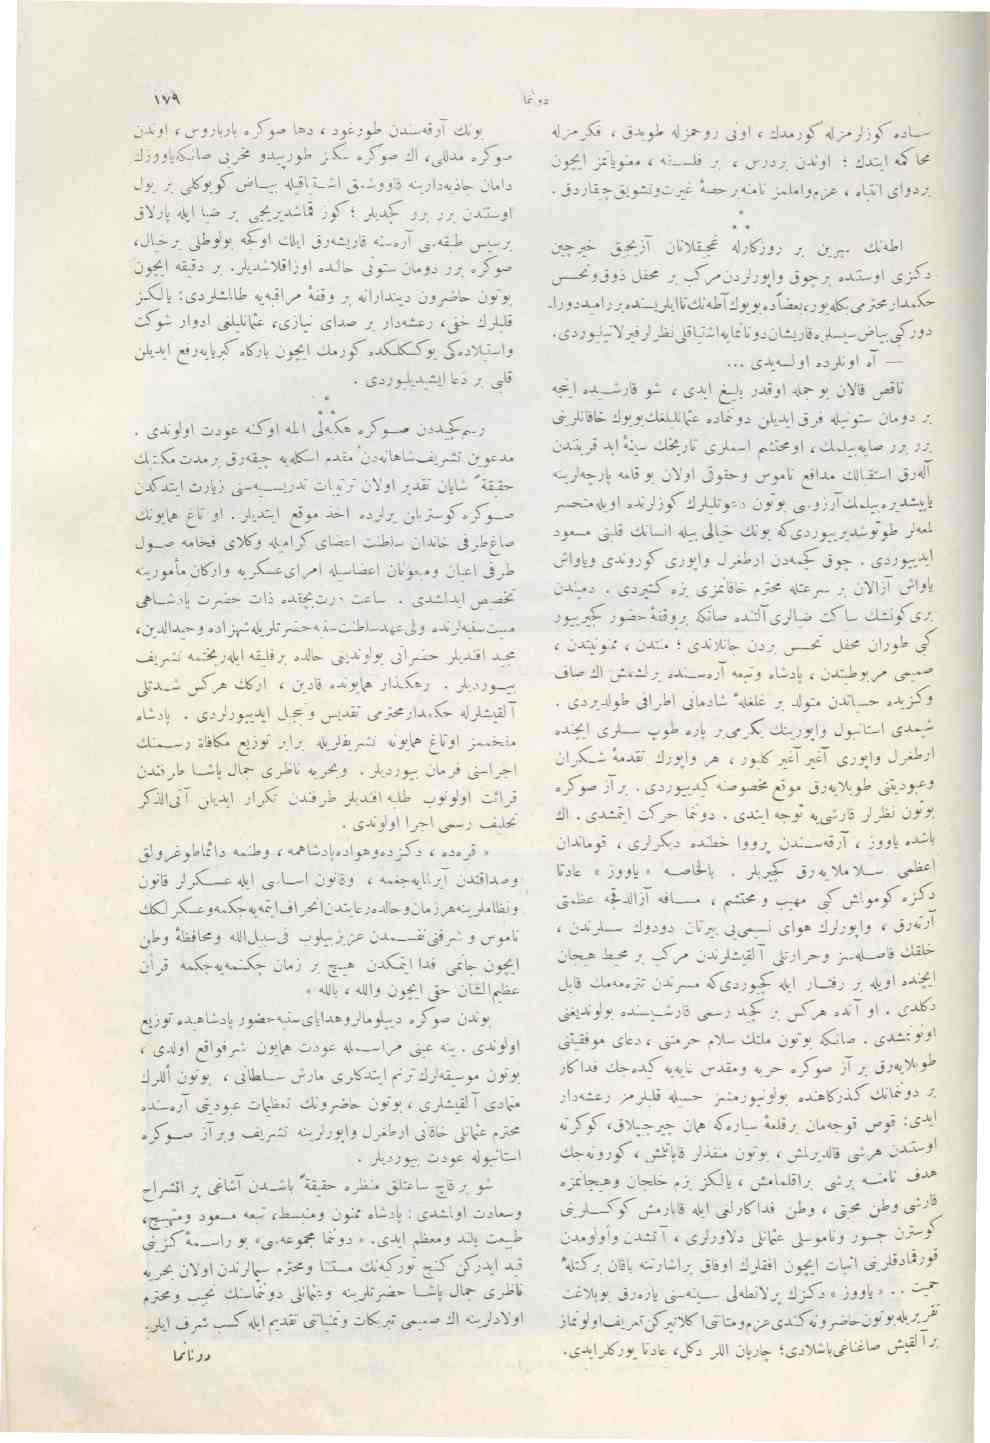 دوننما
١٧٩
ساده كوزلرمزله كورمدك ، اونی روحمزله طويدق ، فكرمزله
محاكمه ايتدك ؛ اوندن بردرس ، بر فلسفه ، معنوياتمز ايچون
بردوای انتباه ، عزم واملمز نامنه بر حصۀ غيرت وتشويق چيقاردق .
* * *
اطه‌نك سيرين بر روزكارله غيجيقلانان آزيجيق خيرچين
دكزی اوستنده برچوق واپورلردن مركب بر محفل ذوق وتحسس
حكمدار محترمی بكله‌يور، بعضاً ده بويوك آطه‌نك تا ايلريسنده بر راميده دورا‌ـ
دور كبی بياض سيسلره قاريشان دوننمايه اشتياقلی نظرلر فيرلاتيليوردی.
— آه اونلرده اولسه‌يدی ...
ناقص قالان بو جمله اوقدر بليغ ايدی ، شو قارشيده اينجه
بر دومان ستونيله فرق ايديلن دوننماده عثمانليلغك بويوك خاقانلرينی
برر برر صايه‌بيلمك ، او محتشم اسملری تاريخك سينۀ ابد قريتندن
آله‌رق استقبالك مدافع ناموس وحقوقی اولان بو قامه پارچه‌لرينه
ياپيشديره‌بيلمك آرزوسی بوتون دعوتليلرك كوزلرنده اويله متحسر
لمعه‌لر طوتوشديرييوردی كه بونك خيالی بيله انسانك قلبنی مسعود
ايدييوردی . چوق كچمه‌دن ارطغرل واپوری كوروندی وياواش
ياواش آزالان بر سرعتله محترم خاقانمزی بزه كتيردی . دميندن
بری كونشك ساكت ضيالری آلتنده صانكه بر وقفۀ حضور كچيرييور
كبی طوران محفل تحسس بردن جانلاندی ؛ منتدن ، ممنونيتدن ،
صميمی مربوطيتدن ، پادشاه وتبعه آره‌سنده برلشمش اك صاف
وكزيده حسياتدن متولد بر غلغلۀ شادمانی اطرافی طولديردی .
شيمدی استانبول واپورينك يكرمی بر پاره طوپ سسلری ايچنده
ارطغرل واپوری آغير آغير كليور ، هر واپورك تقدمۀ شكران
وعبوديتنی طوپلايه‌رق موقع مخصوصنه كيدييوردی . بر آز صوكره
بوتون نظرلر قارشی‌يه توجه ايتدی . دوننما حركت ايتمشدی . اك
باشده ياووز ، آرقه‌سندن پرووا خطنده ديكرلری ، قوماندان
اعظمی سلاملايه‌رق كچيرلر . بالخاصه « ياووز » عادتا
دكزه كومولمش كبی مهيب و محتشم ، مسافه آزالدقجه عظمتی
آرته‌رق ، واپورلرك هوای نسيمی‌يی ييرتان دودوك سسلرندن ،
خلقك فاصله‌سز وحرارتلی آلقيشلرندن مركب بر محيط هيجان
ايچنده اويله بر رفتار ايله كچيوردی كه مسرتدن تتره‌مه‌مك قابل
دكلدی . او آنده هركس بر كچيد رسمی قارشيسنده بولوندیغنی
اونوتمشدی . صانكه بوتون ملتك سلام حرمتنی ، دعای موفقيتنی
طوپلايه‌رق بر آز صوكره حربه ومقدس غايه‌يه كيده‌جك فداكار
بر دوننمانك گذركاهنده بولونيورمشز حسيله قلبلرمز رعشه‌دار
ايدی: قوص قوجه‌مان بر قلعۀ سياره كه همان چيرچيپلاق، كوكرته
اوستندن هر شی قالديرلمش ، بوتون منفذلر قاپاتلمش ، كورونه‌جك
هدف نامنه بر شی براقلمامش ، يالكز بزم خلجان وهيجانمزه
قارشی وطن محبتی ، وطن فداكارلغی ايله قابارمش كوكسلرينی
كوسترن جسور وناموسلی عثمانلی دلاورلری ، آتشدن واولومدن
قورقمادقلرينی اثبات ايچون افقلرك اوفاق براشارتنه باقان بر كتلۀ
حميت .. « ياووز » دكزك پرلانطه‌لی سينه‌سنی ياره‌رق بو بلاغت
تقريريله بوتون حاضرونه كندی عزم ومتانتنی اكلاتيركن تعريف اولونماز
بر آلقيش صاغناغی باشلادی؛ چارپان اللر دكل، عادتا يوركلر ايدی.
بونك آرقه‌سندن طورغود ، دها صوكره بارباروس ، اوندن
صوكره مدللی، اك صوكره سكز طورپيدو مخربی صانكه ياووزك
دامان جاذبه‌دارينه قاووشمق اشتياقيله بياض كوپوكلی بر يول
اوستندن برر برر كچديلر ؛ كوز قماشديريجی بر ضيا ايله پارلاق
برسيس طبقه‌سی آره‌سنه قاريشه‌رق ايلك اوكجه بولوطلی برخيال،
صوكره برر دومان ستونی حالنده اوزاقلاشديلر. بر دقيقه ايچون
بوتون حاضرون ديندارانه بر وقفۀ مراقبه‌يه طالمشلردی: يالكز
قلبلرك خفی، رعشه‌دار بر صدای نيازی، عثمانليلغی ادوار شوكت
واستيلاده‌كی يوكسكلكده كورمك ايچون باركاه كبريايه رفع ايديلن
قلبی بر دعا ايشيديلييوردی .
* * *
رسم كچيددن صوكره هكبه‌لی اطه اوكنه عودت اولوندی .
مدعوين تشريف شاهانه‌دن مقدم اسكله‌يه چيقه‌رق برمدت مكتبك
حقيقةً شايان تقدير اولان ترتيبات تدريسيه‌سنی زيارت ايتدكدن
صوكره كوستريلن يرلرده اخذ موقع ايتديلر . اوتاغ همايونك
صاغ طرفی خاندان سلطنت اعضای كراميله وكلای فخامه صول
طرفی اعيان ومبعوثان اعضاسيله امرای عسكريه واركان مأمورينه
تخصيص ايدلشدی . ساعت درت بچقده ذات حضرت پادشاهی
معيت سنيه‌لرنده ولی عهد سلطنت سنيه حضرتلريله شهزاده وحيدالدين،
مجيد افنديلر حضراتی بولوندیغی حالده برفليقه ايله ريختمه تشريف
بيوردیلر . رهكذار همايونده قادين ، اركك هركس شدتلی
آلقيشلرله حكمدار محترمی تقديس وتبجيل ايدييورلردی . پادشاه
مفخممز اوتاغ همايونه تشريفلريله برابر توزيع مكافاة رسمنك
اجراسنی فرمان بيورديلر . وبحريه ناظری جمال پاشا طرفندن
قرائت اولونوب طلبه افنديلر طرفندن تكرار ايديلن آتی‌الذكر
تحليف رسمی اجرا اولوندی .
« قره‌ده ، دكزده وهواده پادشاهمه ، وطنمه دائما طوغرولق
وصداقتدن آيرلمايه‌جغمه ، وقانون اساسی ايله عسكرلر قانون
ونظاملرينه هر زمان وحالده رعايتدن انحراف ايتمه‌يه‌جكمه وعسكرلكك
ناموس و شرفنی نفسمدن عزيز بيلوب فی سبيل الله ومحافظۀ وطن
ايچون جانمی فدا ايتمكدن هيچ بر زمان چكنمه‌يه‌جكمه قرآن
عظيم الشان حقی ايچون والله ، بالله »
بوندن صوكره ديپلومالر وهدايای سنيه حضور پادشاهيده توزيع
اولوندی . ينه عينی مراسمله عودت همايون شرفواقع اولدی ،
بوتون موسيقه‌لرك ترنم ايتدكلری مارش سلطانی ، بوتون اللرك
متمادی آلقيشلری ، بوتون حاضرونك تعظيمات عبوديتی آره‌سنده
محترم عثمانلی خاقانی ارطغرل واپورلرينه تشريف وبر آز صوكره
استانبوله عودت بيورديلر .
شو بر قاچ ساعتلق منظره حقيقةً باشدن آشاغی بر انشراح
وسعادت اولمشدی : پادشاه ممنون ومنبسط، تبعه مسعود ومبتهج،
طبيعت بلند ومعظم ايدی. « دوننما مجموعه‌سی » بو راسمۀ كزينی
قيد ايدركن كنج توركيه‌نك مستثنا ومحترم سيمالرندن اولان بحريه
ناظری جمال پاشا حضرتلرينه وعثمانلی دوننماسنك نجيب ومحترم
اولادلرينه اك صميمی تبريكات وتمنياتنی تقديم ايله كسب شرف ايلر.
دوننما